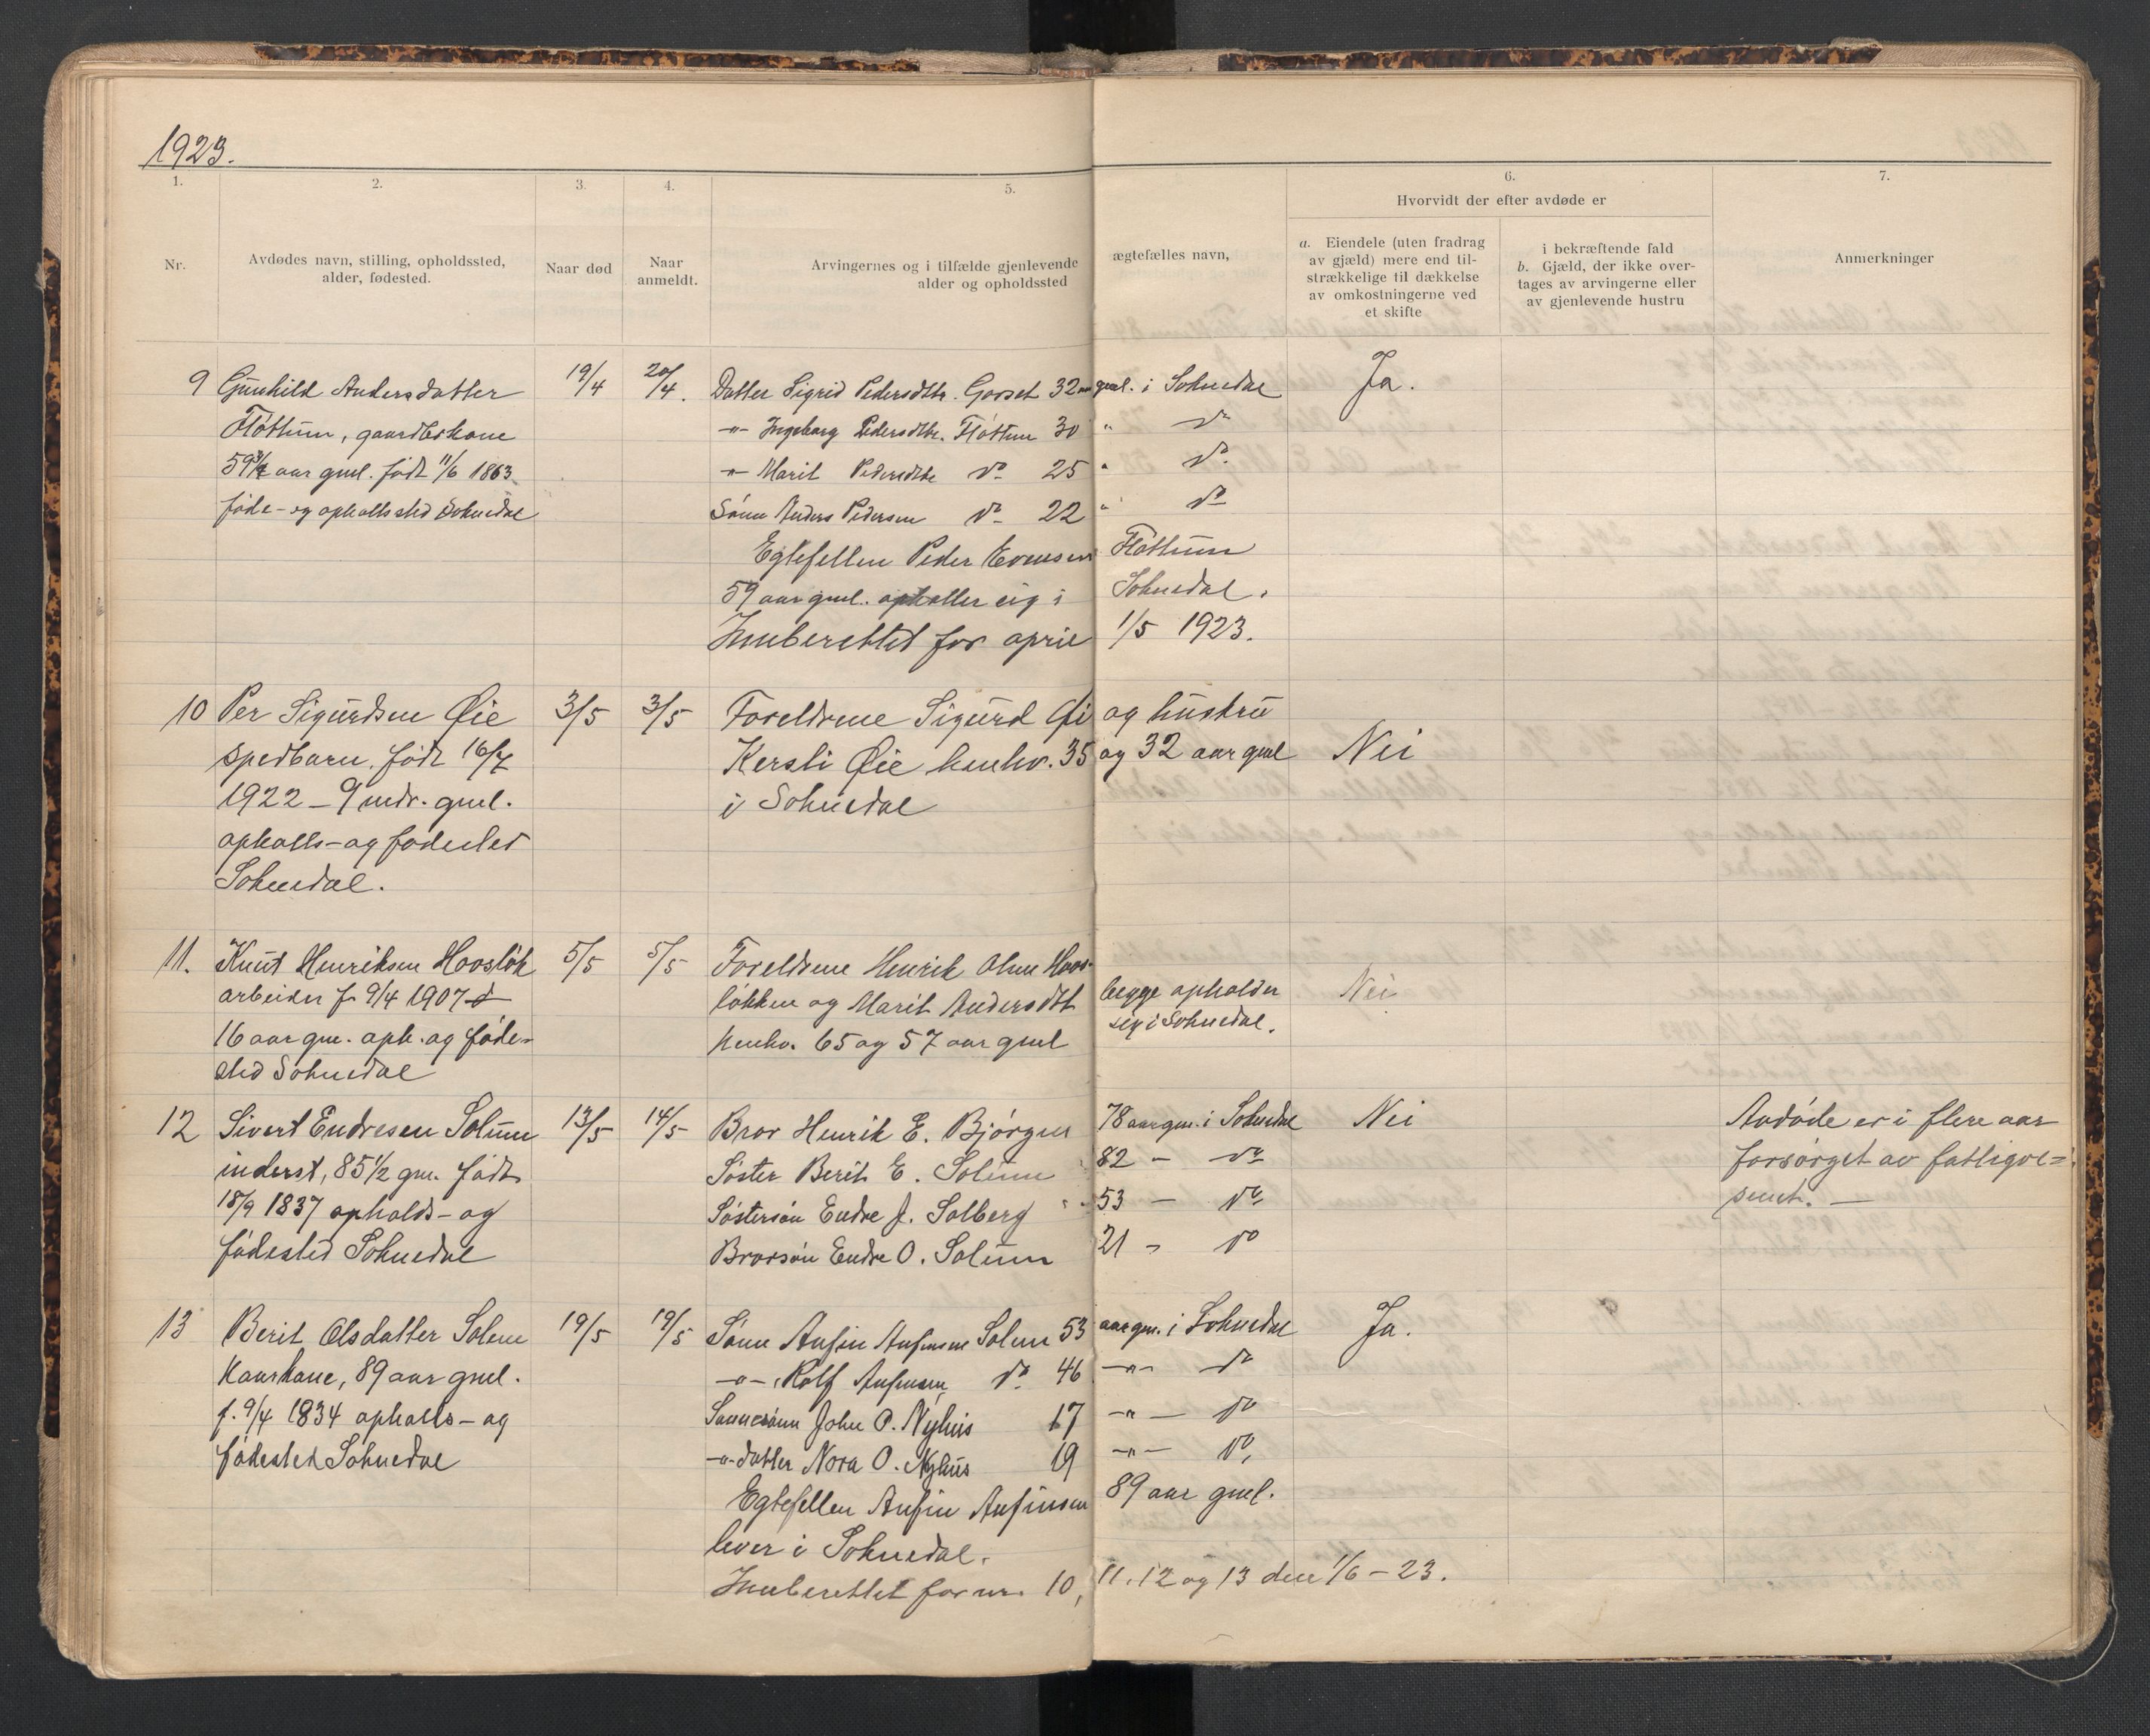 1923.
1. 2. 3. 4. 5. 6. 7.
Hvorvidt der efter avdøde er
Nr.
Avdødes navn, stilling, opholdssted,
alder, fødested.
Naar død
Naar
anmeldt.
Arvingernes og i tilfælde gjenlevende ægtefælles navn,
alder og opholdssted
a. Eiendele (uten fradrag
av gjæld) mere end til-
strækkelige til dækkelse
av omkostningerne ved
et skifte
i bekræftende fald
b. Gjæld, der ikke over-
tages av arvingerne eller
av gjenlevende hustru
Anmerkninger
9 Gunhild Andersdatter 19/4 20/4. Datter Sigrid Pedersdtr. Gorset 32 aar gml. i Soknedal Ja.
Fløttum, gaardbrkone -"- Ingeborg Pedersdtr. Fløttum 30 " do
59 3/4 aar gml. født 11/6 1863 -"- Marit Pedersdtr do 25 " do
føde- og opholls sted Soknedal Sønn Anders Pedersen do 22 " do
Egtefellen Peder Evensen Fløttum
59 aar gml. opholler sig i Soknedal.
Innberettet for april 1/5 1923.
10 Per Sigurdsen Øie 3/5 3/5 Foreldrene Sigurd Øi og hustru
spedbarn, født 16/7 Kersti Øie henhv. 35 og 32 aar gml Nei
1922 - 9 mdr. gml. i Soknedal
opholls- og fødested
Soknedal.
11. Knut Henriksen Hovsløk 5/5 5/5 Foreldrene Henrik Olsen Hovs-
arbeider f 9/4 1907 løkken og Marit Andersdtt begge opholder Nei
16 aar gm. oph. og føde- henhv. 65 og 57 aar gml sig i Soknedal.
sted Soknedal
12 Sivert Endresen Solum 13/5 14/5 Bror Henrik E. Bjørgen 78 aar gm. i Soknedal Nei Avdøde er i flere aar
inderst, 85 1/2 gm. født Søster Berit E. Solum 82 - do forsørget av fattigve-
18/9 1837 opholds- og Søstersøn Endre J. Solberg 53 - do senet. -
fødested Soknedal Brorsøn Endre O. Solum 21 - do
13 Berit Olsdatter Solem 19/5 19/5 Sønn Anfin Anfinsen Solem 53 aar gm. i Soknedal Ja.
Kaarkone, 89 aar gml. -"- Rolf Anfinsen do 46 -"- do
f. 9/4 1834 opholls- og Sønnesønn John O. Nyhus 17 -"- do
fødested Soknedal -"- datter Nora O. Nyhus 19 -"- do
Egtefellen Anfin Anfinsen 89 aar gml.
lever i Soknedal.
Innberettet for nr. 10, 11, 12 og 13 den 1/6 - 23.